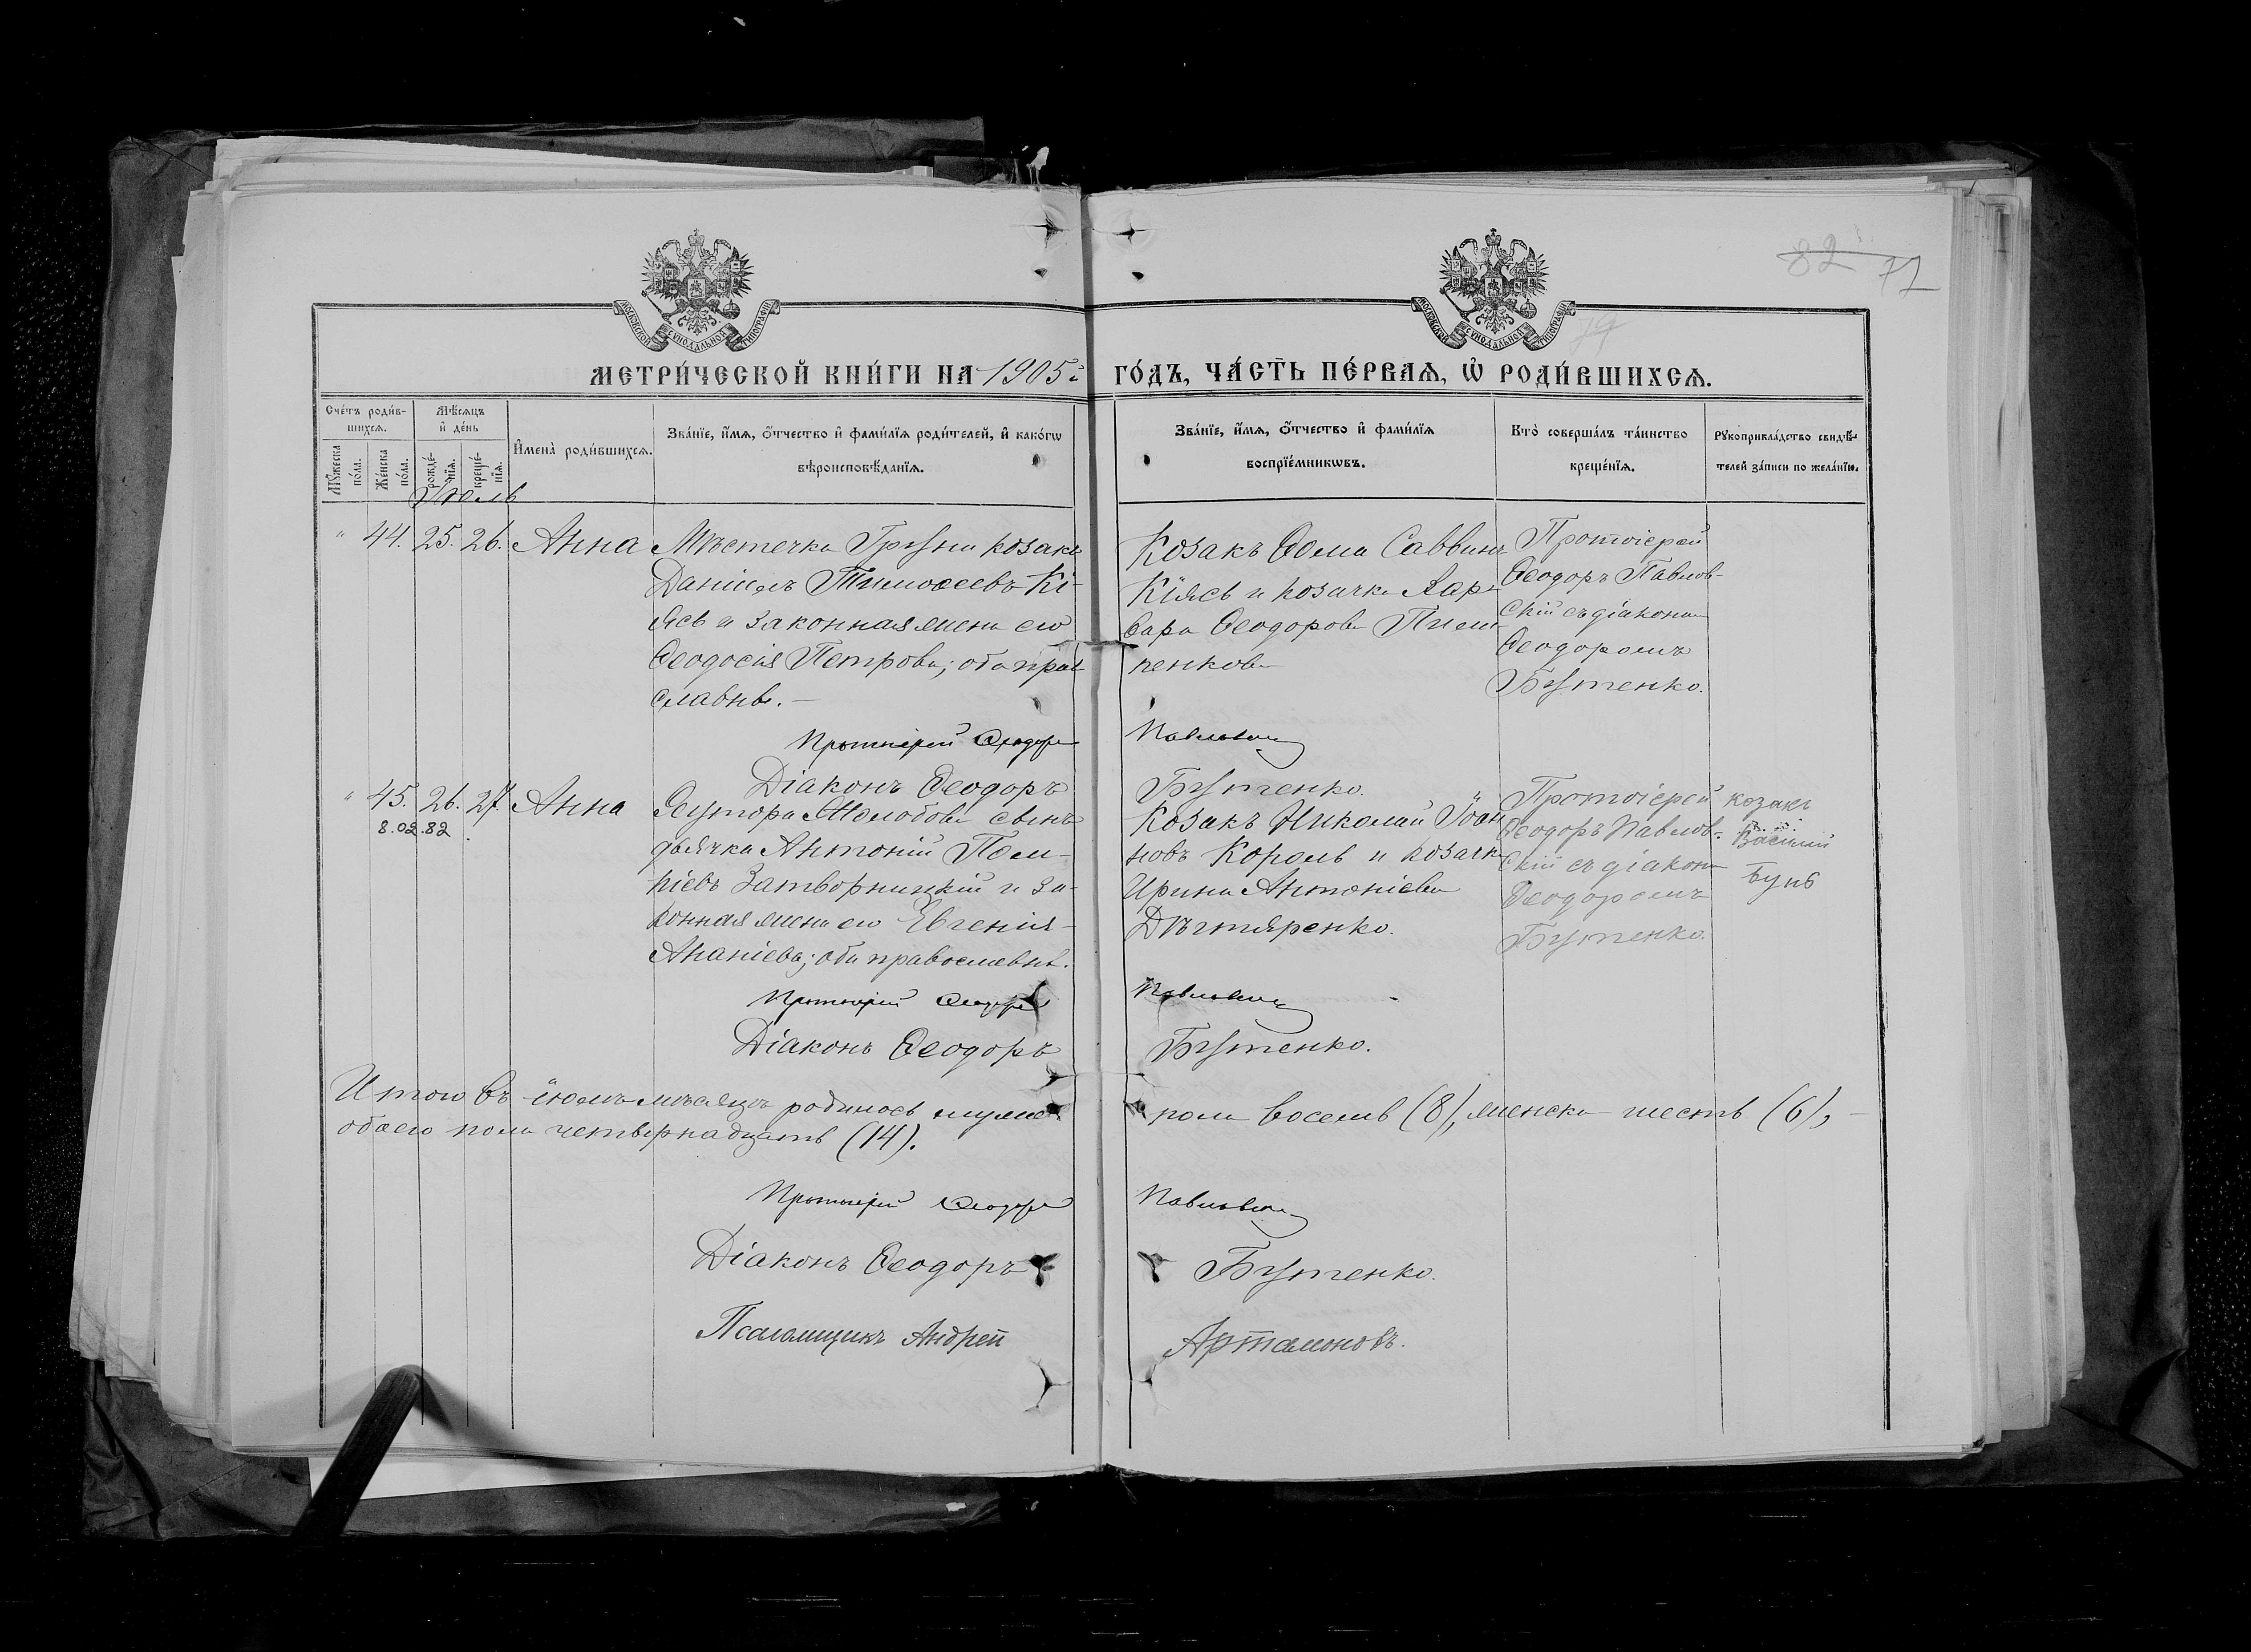 82 71
79
МОСКОВСКОЙ СѴНОДАЛЬНОЙ ТИПОГРАФІИ
МОСКОВСКОЙ СѴНОДАЛЬНОЙ ТИПОГРАФІИ
МЕТРИ́ЧЕСКОЙ КНИ́ГИ НА 1905 г.
ГО́ДЪ, ЧА́СТЬ ПЕ́РВАѦ, Ѡ РОДИ́ВШИХСѦ.
Сче́тъ роди́в-
шихсѧ.
Мꙋ́жеска по́ла.
Же́нска по́ла.
Мѣ́сѧцъ
и҆ де́нь
рожде́-
нїѧ.
креще́-
нїѧ.
И҆мена̀ роди́вшихсѧ.
Зва́нїе, и҆́мѧ, ѻ҆́тчество и҆ фами́лїѧ роди́телей, и҆ како́гѡ
вѣроисповѣ́данїѧ.
Зва́нїе, и҆́мѧ, ѻ҆́тчество и҆ фами́лїѧ
воспрїе́мникѡвъ.
Кто̀ соверша́лъ та́инство
креще́нїѧ.
Рꙋкоприкла́дство свидѣ́-
телей за́писи по жела́нїю.
Іюль
" 44. 25. 26. Анна
Мѣстечка Груни козакъ
Даніилъ Тимоѳеевъ Кі-
яєь и законная жена его
Ѳеодосія Петрова; оба право
славны. –
Козакъ Ѳома Саввинъ
Кіяєь и козачка Вар-
вара Ѳеодорова
пенкова
Протоіерей
Ѳеодоръ Павлов-
скій съ діакономъ
Ѳеодоромъ
Бутенко.
Протоіерей Ѳеодоръ Павловскій
Діаконъ Ѳеодоръ Бутенко.
" 45. 26. 27. Анна
8.02.82
Хутора Молобова сынъ
дьячка Антоній Пом-
піевъ Затворницкій и за-
конная жена его Евгенія
Ананіева; оба православны.
Козакъ Николай Іоан
новъ Король и козачка
Ирина Антоніева
Дѣгтяренко.
Протоіерей
Ѳеодоръ Павлов-
скій съ діакономъ
Ѳеодоромъ
Бутенко.
козакъ
Василий
Протоіерей Ѳеодоръ Павловскій
Діаконъ Ѳеодоръ Бутенко.
Итого въ іюлѣ мѣсяцѣ родилось мужеска пола восемь (8), женска шесть (6), –
обоего пола четырнадцать (14).
Протоіерей Ѳеодоръ Павловскій
Діаконъ Ѳеодоръ Бутенко.
Псаломщикъ Андрей Артамоновъ.